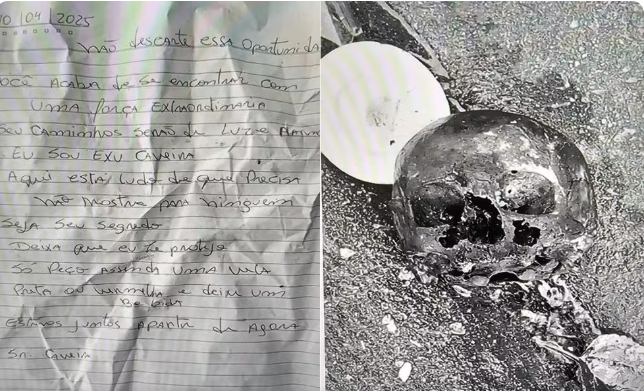 10/04/2025
Não descarte essa oportunida
ocê Acaba de se encontrar com
Uma força Extraordinaria
Seu Camminhos Serão de Luz e
Eu Sou Exu Caveira
Aqui esta tudo de que Precisa
Não Mostre para ninguem
Seja Seu Segredo
Deixa que eu te proteje
Só Peço Assenda uma vela
Preta ou vermelha e deixe um
Estamos juntos Apartir de Agora
Sr. Caveira